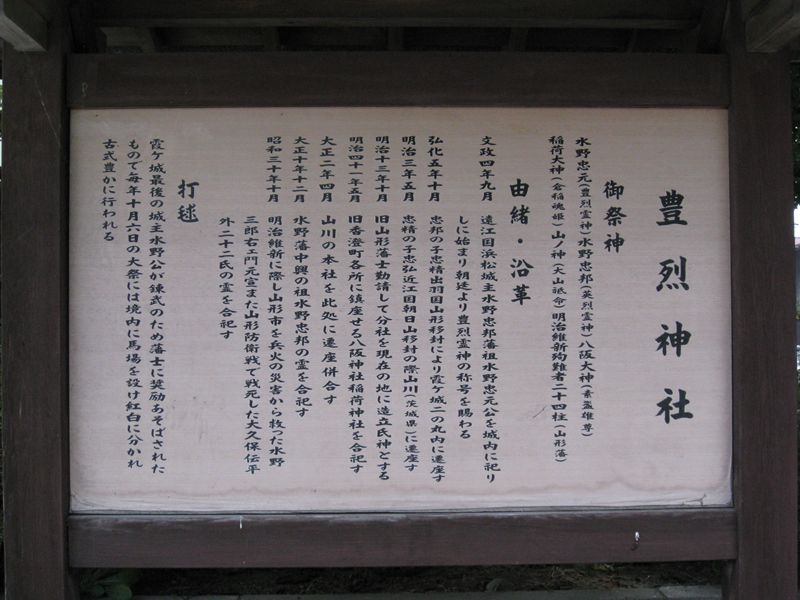 豊烈神社
御祭神
水野忠元(豊烈霊神)水野忠邦(英烈霊神)八阪大神(素盞雄尊)
稲荷大神(倉稲魂姫)山ノ神(大山祇命)明治維新殉難者二十四柱(山形藩)
由緒・沿革
文政四年九月 遠江国浜松城主水野忠邦藩祖水野忠元公を城内に祀り
しに始まり朝廷より豊烈霊神の称号を賜わる
弘化五年十月 忠邦の子忠精出羽国山形移封により霞ケ城二の丸内に遷座す
明治三年五月 忠精の子忠弘近江国朝日山移封の際山川(茨城県)に遷座す
明治十三年十月 旧山形藩士勤請して分社を現在の地に造立氏神とする
明治四十一年五月 旧香澄町各所に鎮座せる八阪神社稲荷神社を合祀す
大正二年四月 山川の本社を此処に遷座併合す
大正十年十二月 水野藩中興の祖水野忠邦の霊を合祀す
昭和三十年十月 明治維新に際し山形市を兵火の災害から救った水野
三郎右エ門元宣また山形防衛戦で戦死した大久保伝平
外二十二氏の霊を合祀す
打毬
霞ケ城最後の城主水野公が錬武のため藩士に奨励あそばされた
もので毎年十月六日の大祭には境内に馬場を設け紅白に分かれ
古式豊かに行われる